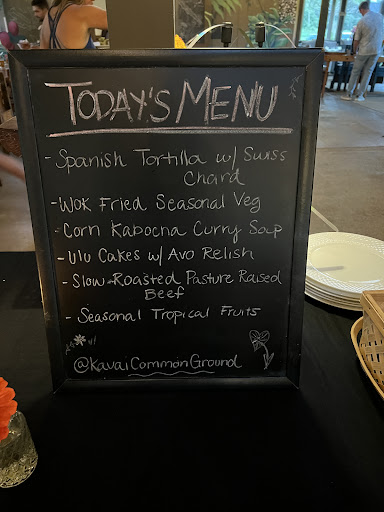 TODAY'S MENU
- Spanish Tortilla w/ Swiss
Chard
- Wok Fried Seasonal Veg
- Corn Kabocha Curry Soup
- Ulu Cakes w/ Avo Relish
- Slow-Roasted Pasture Raised
Beef
- Seasonal Tropical Fruits
@KauaiCommonGround